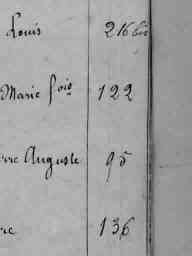 Louis 216 bis
Marie fois 122
rre Auguste 95
re 136